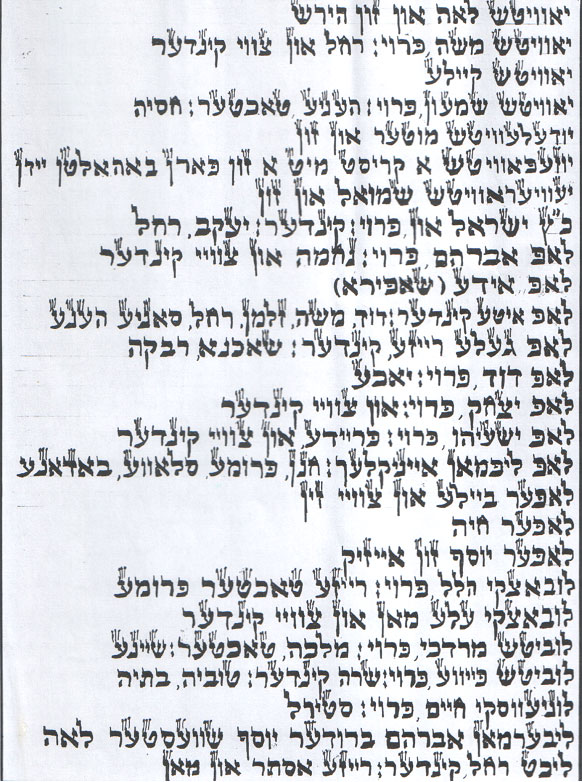 יאוויטש לאה און זון הירש
יאוויטש משה, פרוי: רחל און צווי קינדער
יאוויטש קיילע
יאוויטש שמעון, פרוי: העניע, טאכטער: חסיה
יודעלעוויטש מוטער און זון
יוזעפאוויטש א קריסט מיט א זון פארן באהאלטן יידן
יעוויעראוויטש שמואל און זון
כ"ץ ישראל און, פרוי: קינדער: יעקב, רחל
לאפ אברהם, פרוי: נחמה און צווויי קינדער
לאפ אידע (שאפירא)
לאפ איטע קינדער: דוד, משה, זלמן, רחל, סאניע העניע
לאפ געלע רייזע, קינדער: שאכנא, רבקה
לאפ דוד, פרוי: יאכע
לאפ יצחק, פרוי: און צווויי קינדער
לאפ ישעיהו, פרוי: פריידע, און צווויי קינדער
לאפ ליפמאן אייניקלעך: חנן, פרומע, סלאווע, באדאנע
לאפער ביילע און צווויי זין
לאפער חיה
לאפער יוסף זון אייזיק
לובאצקי הלל, פרוי: רייזע טאכטער פרומע
לובאצקי עלע מאן און צווויי קינדער
לוביטש מרדכי, פרוי: מלכה, טאכטער: שיינע
לוביטש פייווע, פרוי: שרה קינדער: טוביה, בתיה
לוניעווסקי חיים, פרוי: סטירל
ליבערמאן אברהם ברודער יוסף שוועסטער לאה
ליבט רחל, קינדער: רייזע אסתר און מאן